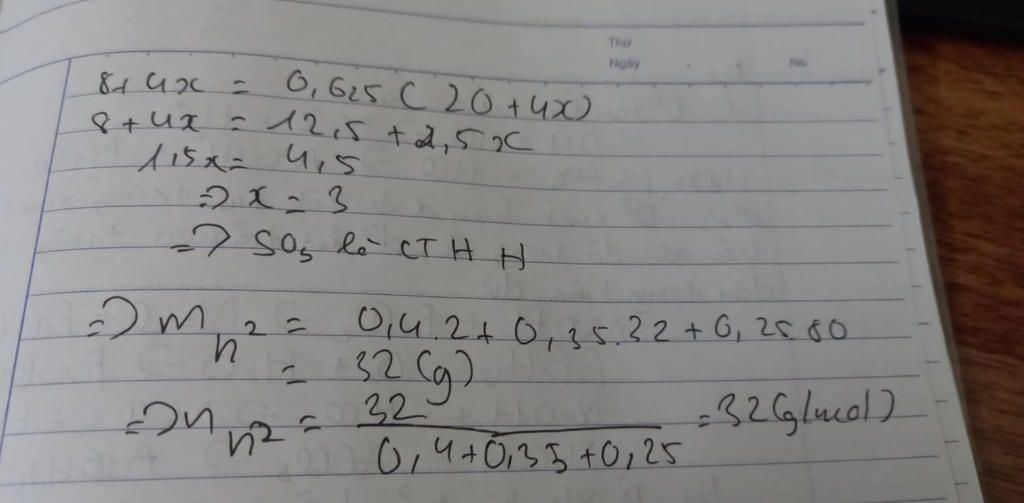 Thứ
Ngày No.
8+4x = 0,625(20+4x)
8+4x = 12,5+2,5x
1,5x= 4,5
=> x = 3
=> SO3 là CTHH
=> m h² = 0,4.2+0,35.32+0,25.80
= 32(g)
=> M h² = 32 / 0,4+0,35+0,25 = 32(g/mol)